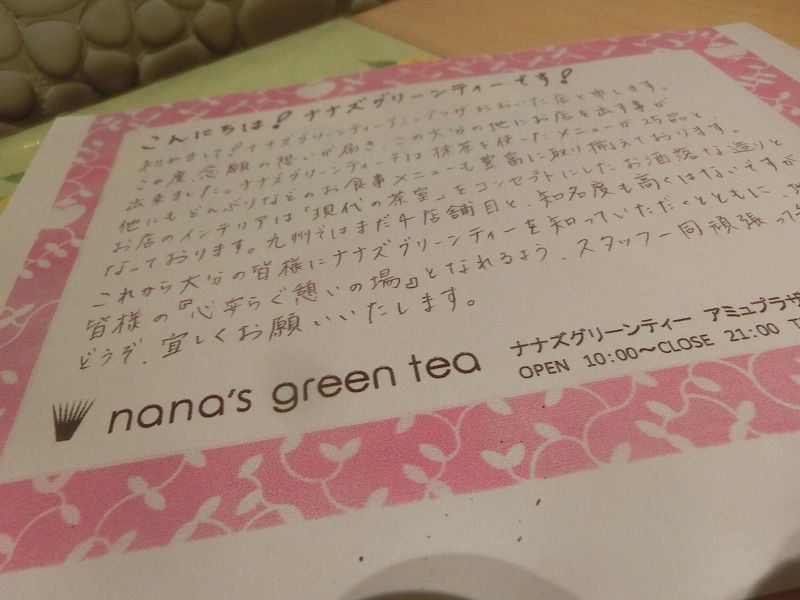 こんにちは！ナナズグリーンティーです！
初めまして！ナナズグリーンティーアミュプラザおおいた店と申します。
この度、念願の想いが届き、この大分の地にお店を出す事が
出来ました。ナナズグリーンティーでは抹茶を使ったメニューが25品と、
他にもどんぶりなどのお食事メニューも豊富に取り揃えております。
お店のインテリアは「現代の茶室」をコンセプトにしたお洒落な造りと
なっております。九州ではまだ4店舗目と、知名度も高くはないですが
これから大分の皆様にナナズグリーンティーを知っていただくとともに
皆様の『心安らぐ憩いの場』となれるよう、スタッフ一同頑張って
どうぞ、宜しくお願いいたします。
nana's green tea
ナナズグリーンティー アミュプラザ
OPEN 10:00～CLOSE 21:00